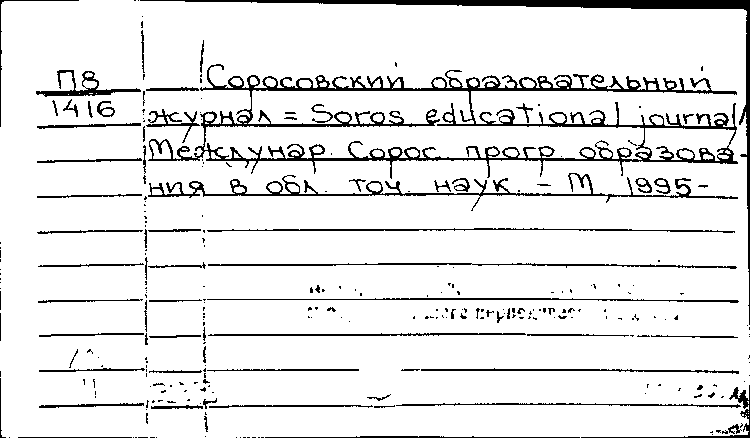 П8
1416
Соросовский образовательный
журнал = Soros educational journal /
Междунар. Сорос. прогр. образова-
ния в обл. точ. наук. - М., 1995-